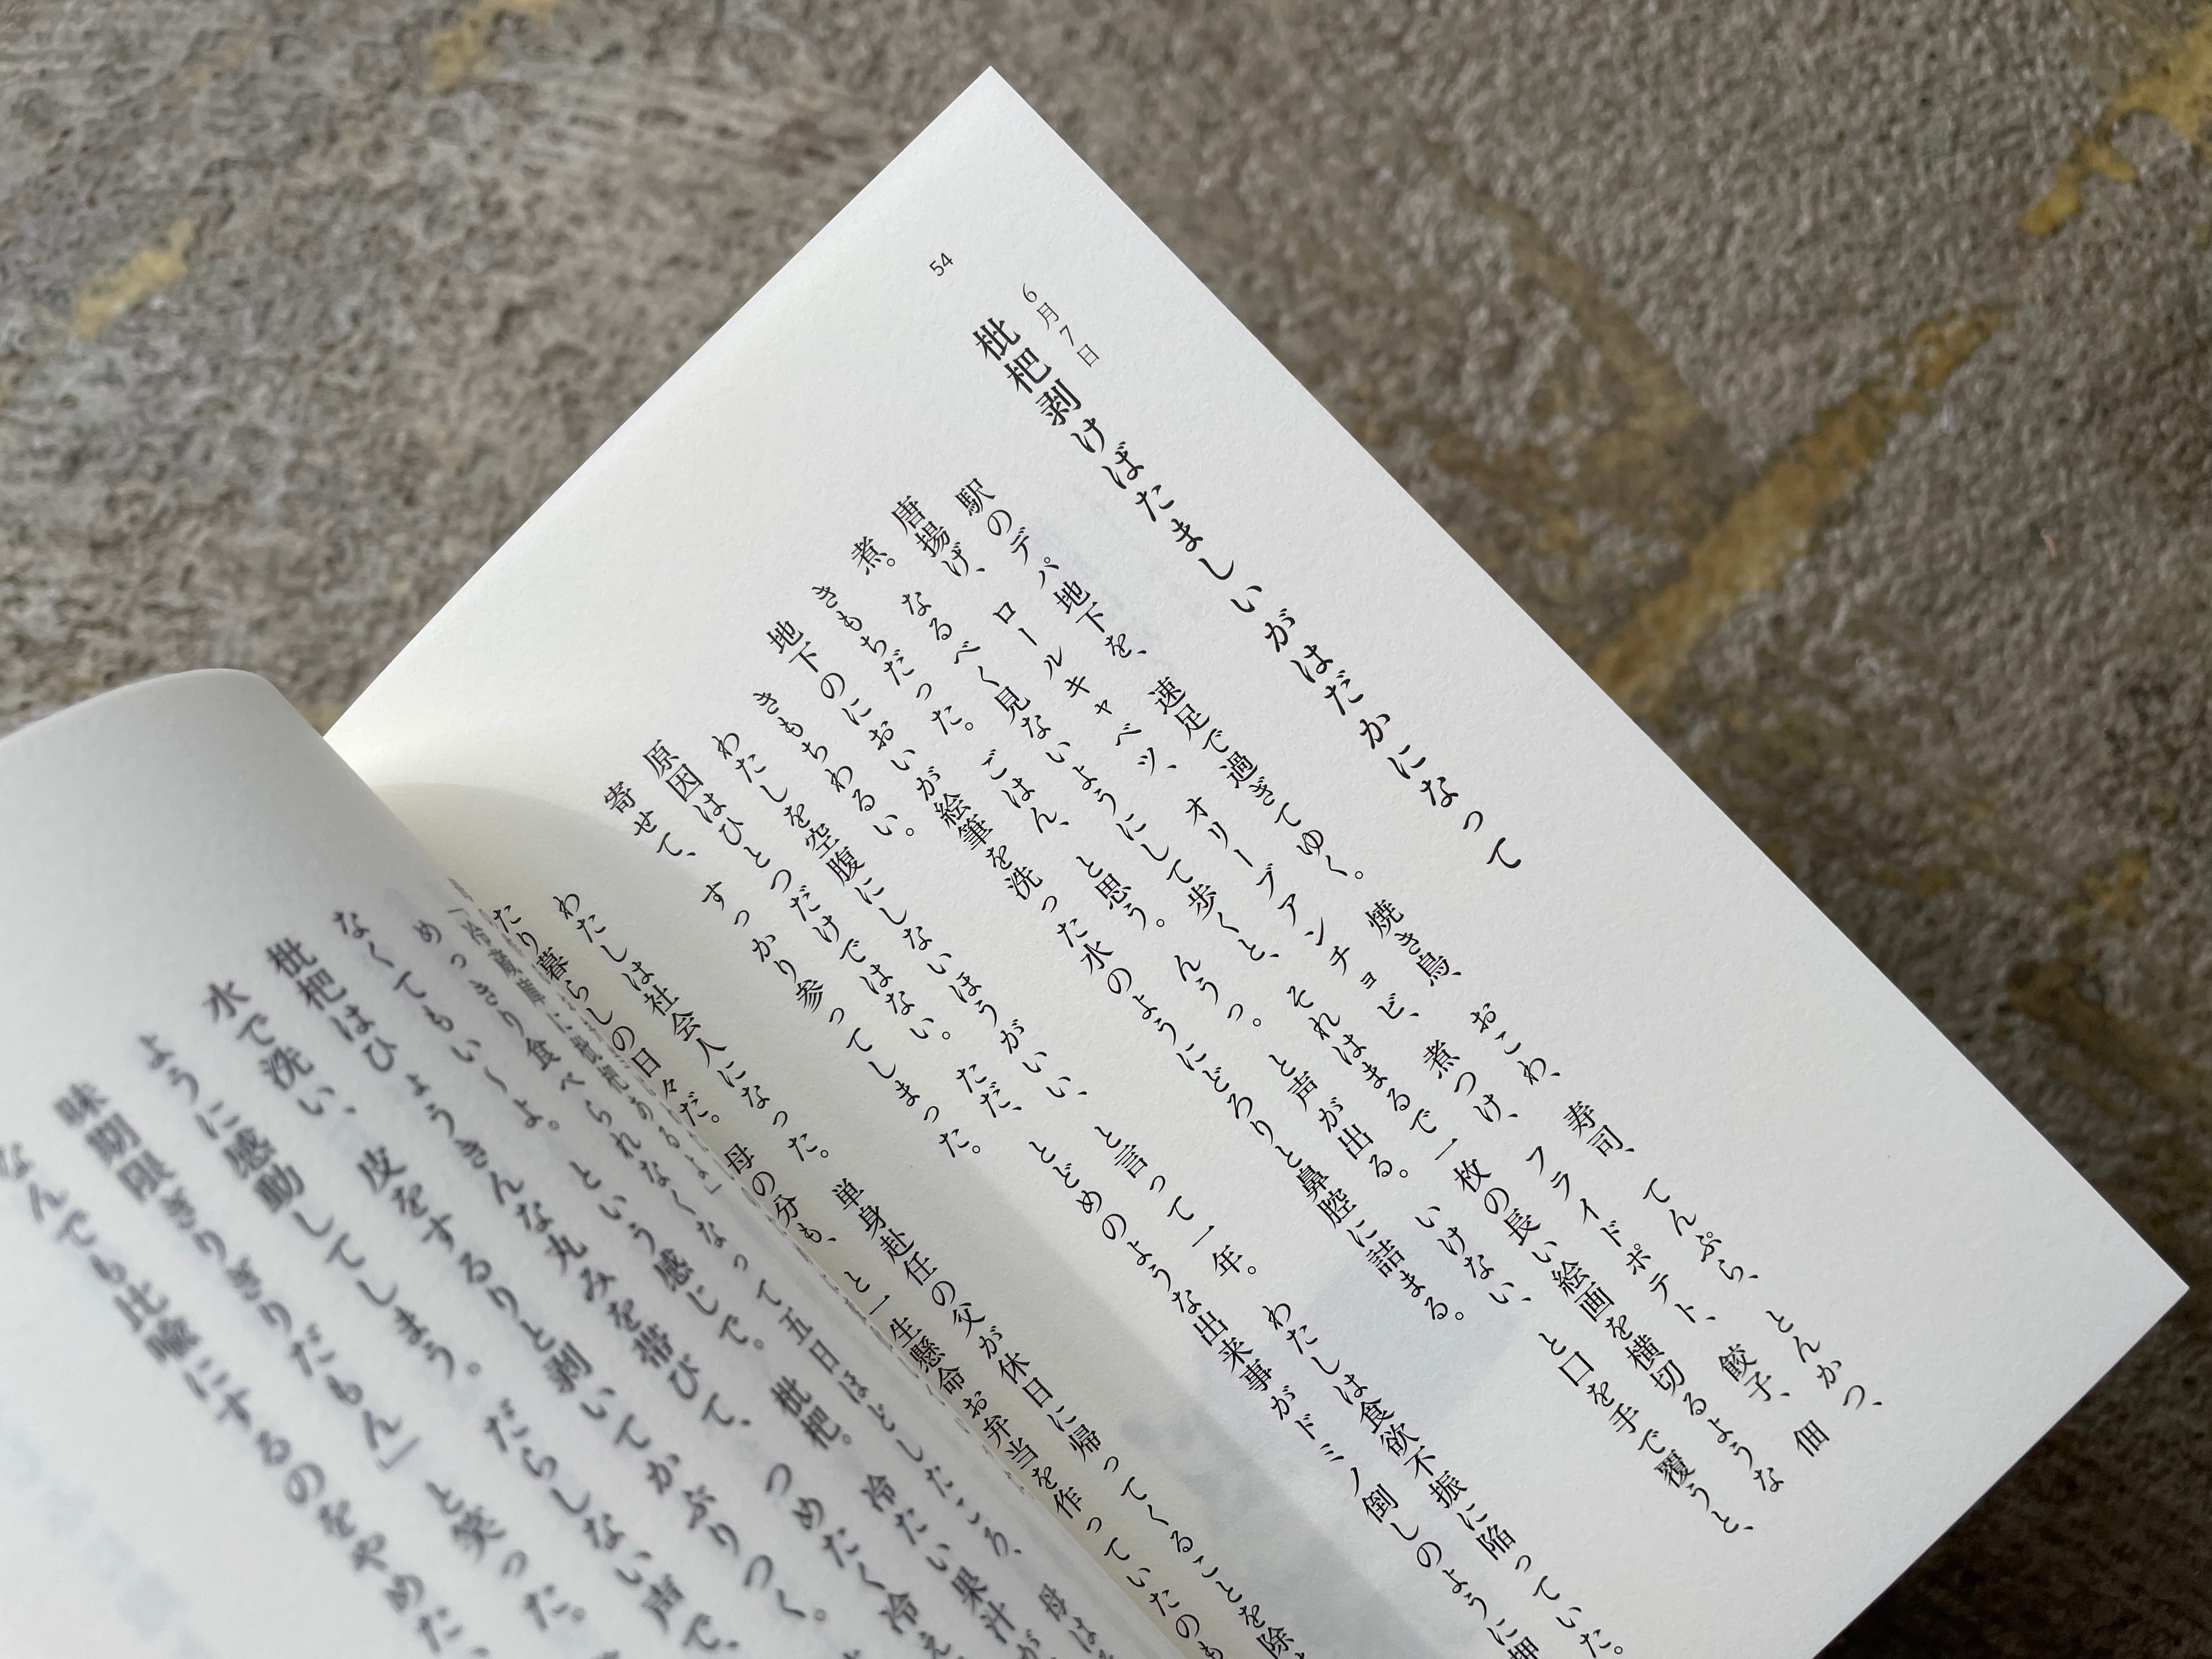 54
6月7日
枇杷剥けばたましいがはだかになって
駅のデパ地下を、速足で過ぎてゆく。焼き鳥、おこわ、寿司、てんぷら、とんかつ、
唐揚げ、ロールキャベツ、オリーブアンチョビ、煮つけ、フライドポテト、餃子、佃
煮。なるべく見ないようにして歩くと、それはまるで一枚の長い絵画を横切るような
きもちだった。ごはん、と思う。んうっ。と声が出る。いけない、と口を手で覆うと、
地下のにおいが絵筆を洗った水のようにどろりと鼻腔に詰まる。
きもちわるい。
わたしを空腹にしないほうがいい、と言って一年。わたしは食欲不振に陥っていた。
原因はひとつだけではない。ただ、とどめのような出来事がドミノ倒しのように押
寄せて、すっかり参ってしまった。
わたしは社会人になった。単身赴任の父が休日に帰ってくることを除
たり暮らしの日々だ。母の分も、と一生懸命お弁当を作っていたのも
「冷蔵庫に枇杷あるよ」
めっきり食べられなくなって五日ほどしたころ、母は
なくてもい〜よ。という感じで。枇杷。冷たい果汁が
枇杷はひょうきんな丸みを帯びて、つめたく冷え
水で洗い、皮をするりと剥いてかぶりつく。
ように感動してしまう。だらしない声で、
味期限ぎりぎりだもん」と笑った。
なんでも比喩にするのをやめた、